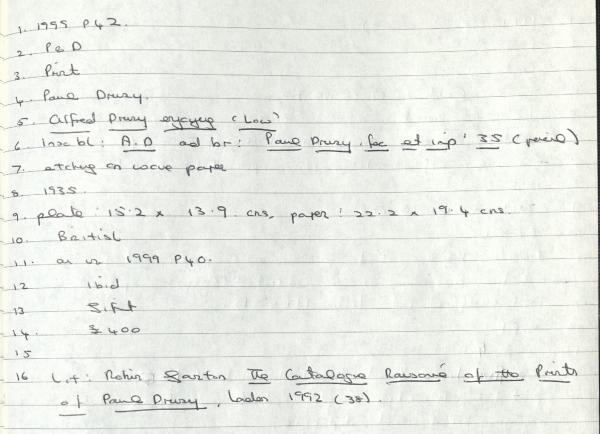 1. 1999 P42.
2. P&D
3. Print
4. Paul Drury.
5. Alfred Drury enjoying 'Low'
6. Insc bl: A.D and br: Paul Drury. fec et imp' 35 (pencil)
7. etching on wove paper
8. 1935.
9. plate: 15.2 x 13.9 cms, paper: 22.2 x 19.4 cms.
10. British
11. as in 1999 P40.
12 ibid
13 Gift
14. £400
15
16 Lit: Robin Garton The Catalogue Raisonné of the Prints
of Paul Drury, London 1992 (38).